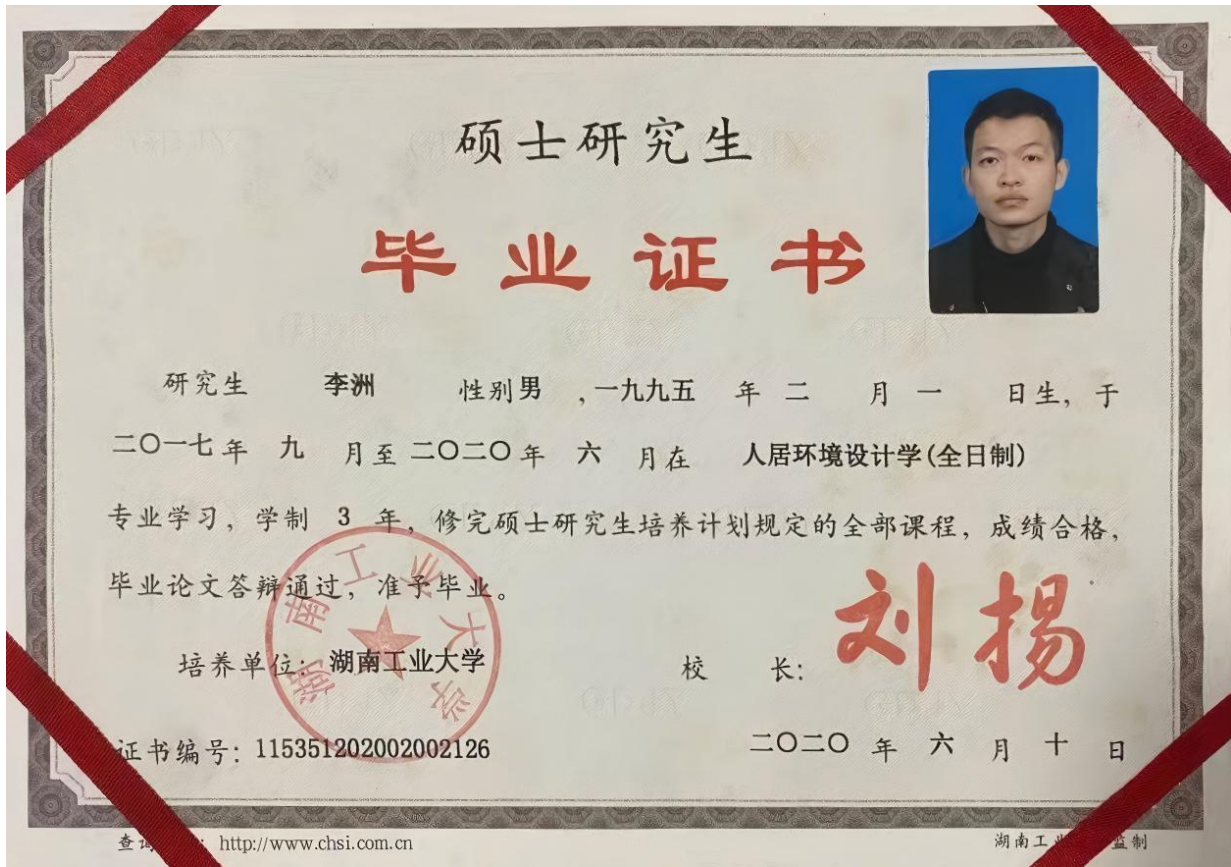 硕士研究生
毕业证书
研究生 李洲 性别 男 ,一九九五 年 二 月 一 日生, 于
二〇一七 年 九 月至 二〇二〇 年 六 月在 人居环境设计学(全日制)
专业学习, 学制 3 年, 修完硕士研究生培养计划规定的全部课程, 成绩合格,
毕业论文答辩通过, 准予毕业。
湖南工业大学
培养单位: 湖南工业大学
校 长: 刘扬
证书编号: 115351202002002126
二〇二〇 年 六 月 十 日
查 : http://www.chsi.com.cn
湖南工 监制